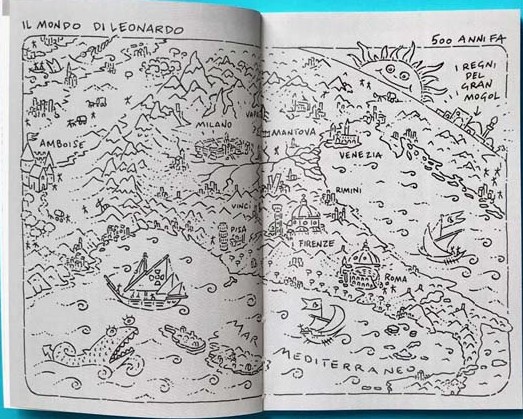 IL MONDO DI LEONARDO
500 ANNI FA
I REGNI
DEL
GRAN
MOGOL
MILANO
MANTOVA
AMBOISE
VENEZIA
RIMINI
VINCI
PISA
FIRENZE
ROMA
MAR
MEDITERRANEO